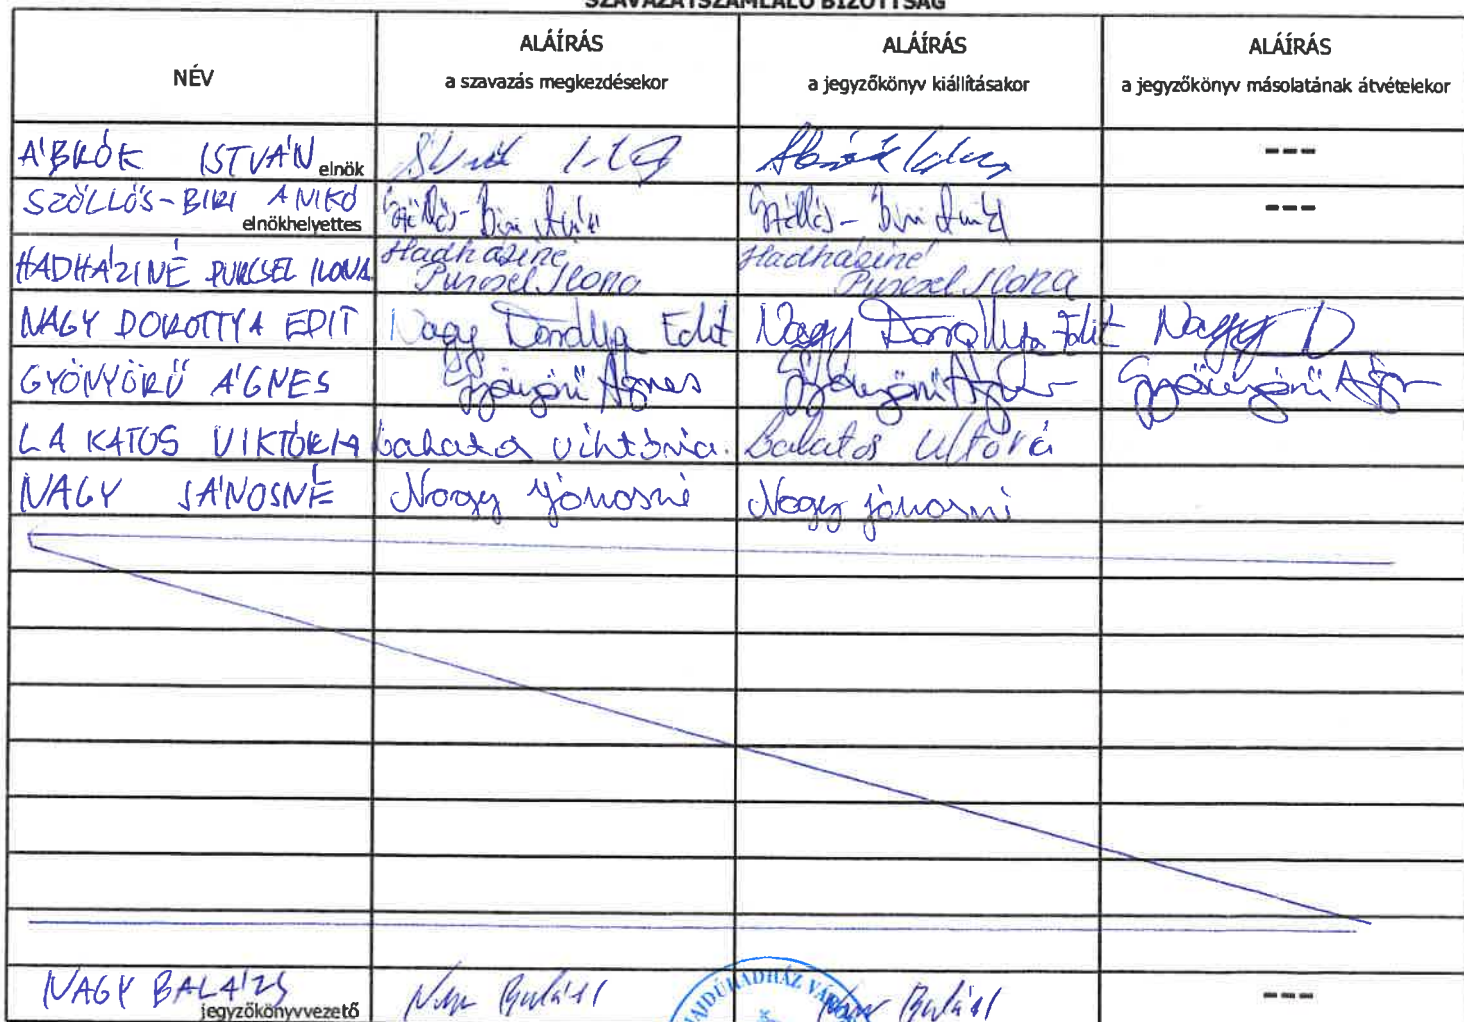 SZAVAZATSZÁMLÁLÓ BIZOTTSÁG
NÉV
ALÁÍRÁS
a szavazás megkezdésekor
ALÁÍRÁS
a jegyzőkönyv kiállításakor
ALÁÍRÁS
a jegyzőkönyv másolatának átvételekor
ÁBRÓK ISTVÁN elnök
---
SZÖLLŐS-BIRI ANIKÓ
elnökhelyettes
Szöllős-Biri Anikó
Szöllős-Biri Anikó
---
HADHÁZINÉ PURCSEL ILONA
Hadháziné
Purcsel Ilona
Hadháziné
Purcsel Ilona
NAGY DOROTTYA EDIT
Nagy Dorottya Edit
Nagy Dorottya Edit
Nagy D
GYÖNYÖRŰ ÁGNES
Gyönyörű Ágnes
Gyönyörű Ágnes
Gyönyörű Ágn
LAKATOS VIKTÓRIA
Lakatos Viktória.
Lakatos
NAGY JÁNOSNÉ
Nagy Jánosné
Nagy Jánosné
NAGY BALÁZS
jegyzőkönyvvezető
Balázs
HAJDÚHADHÁZ VÁROS
Balázs
---